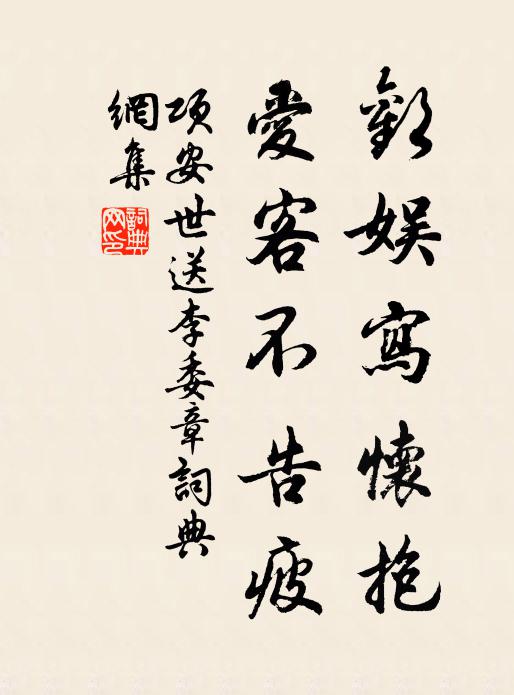 歡娱寫懷抱
愛客不告疲
項安世送李委章詞典
網集
詞典網印